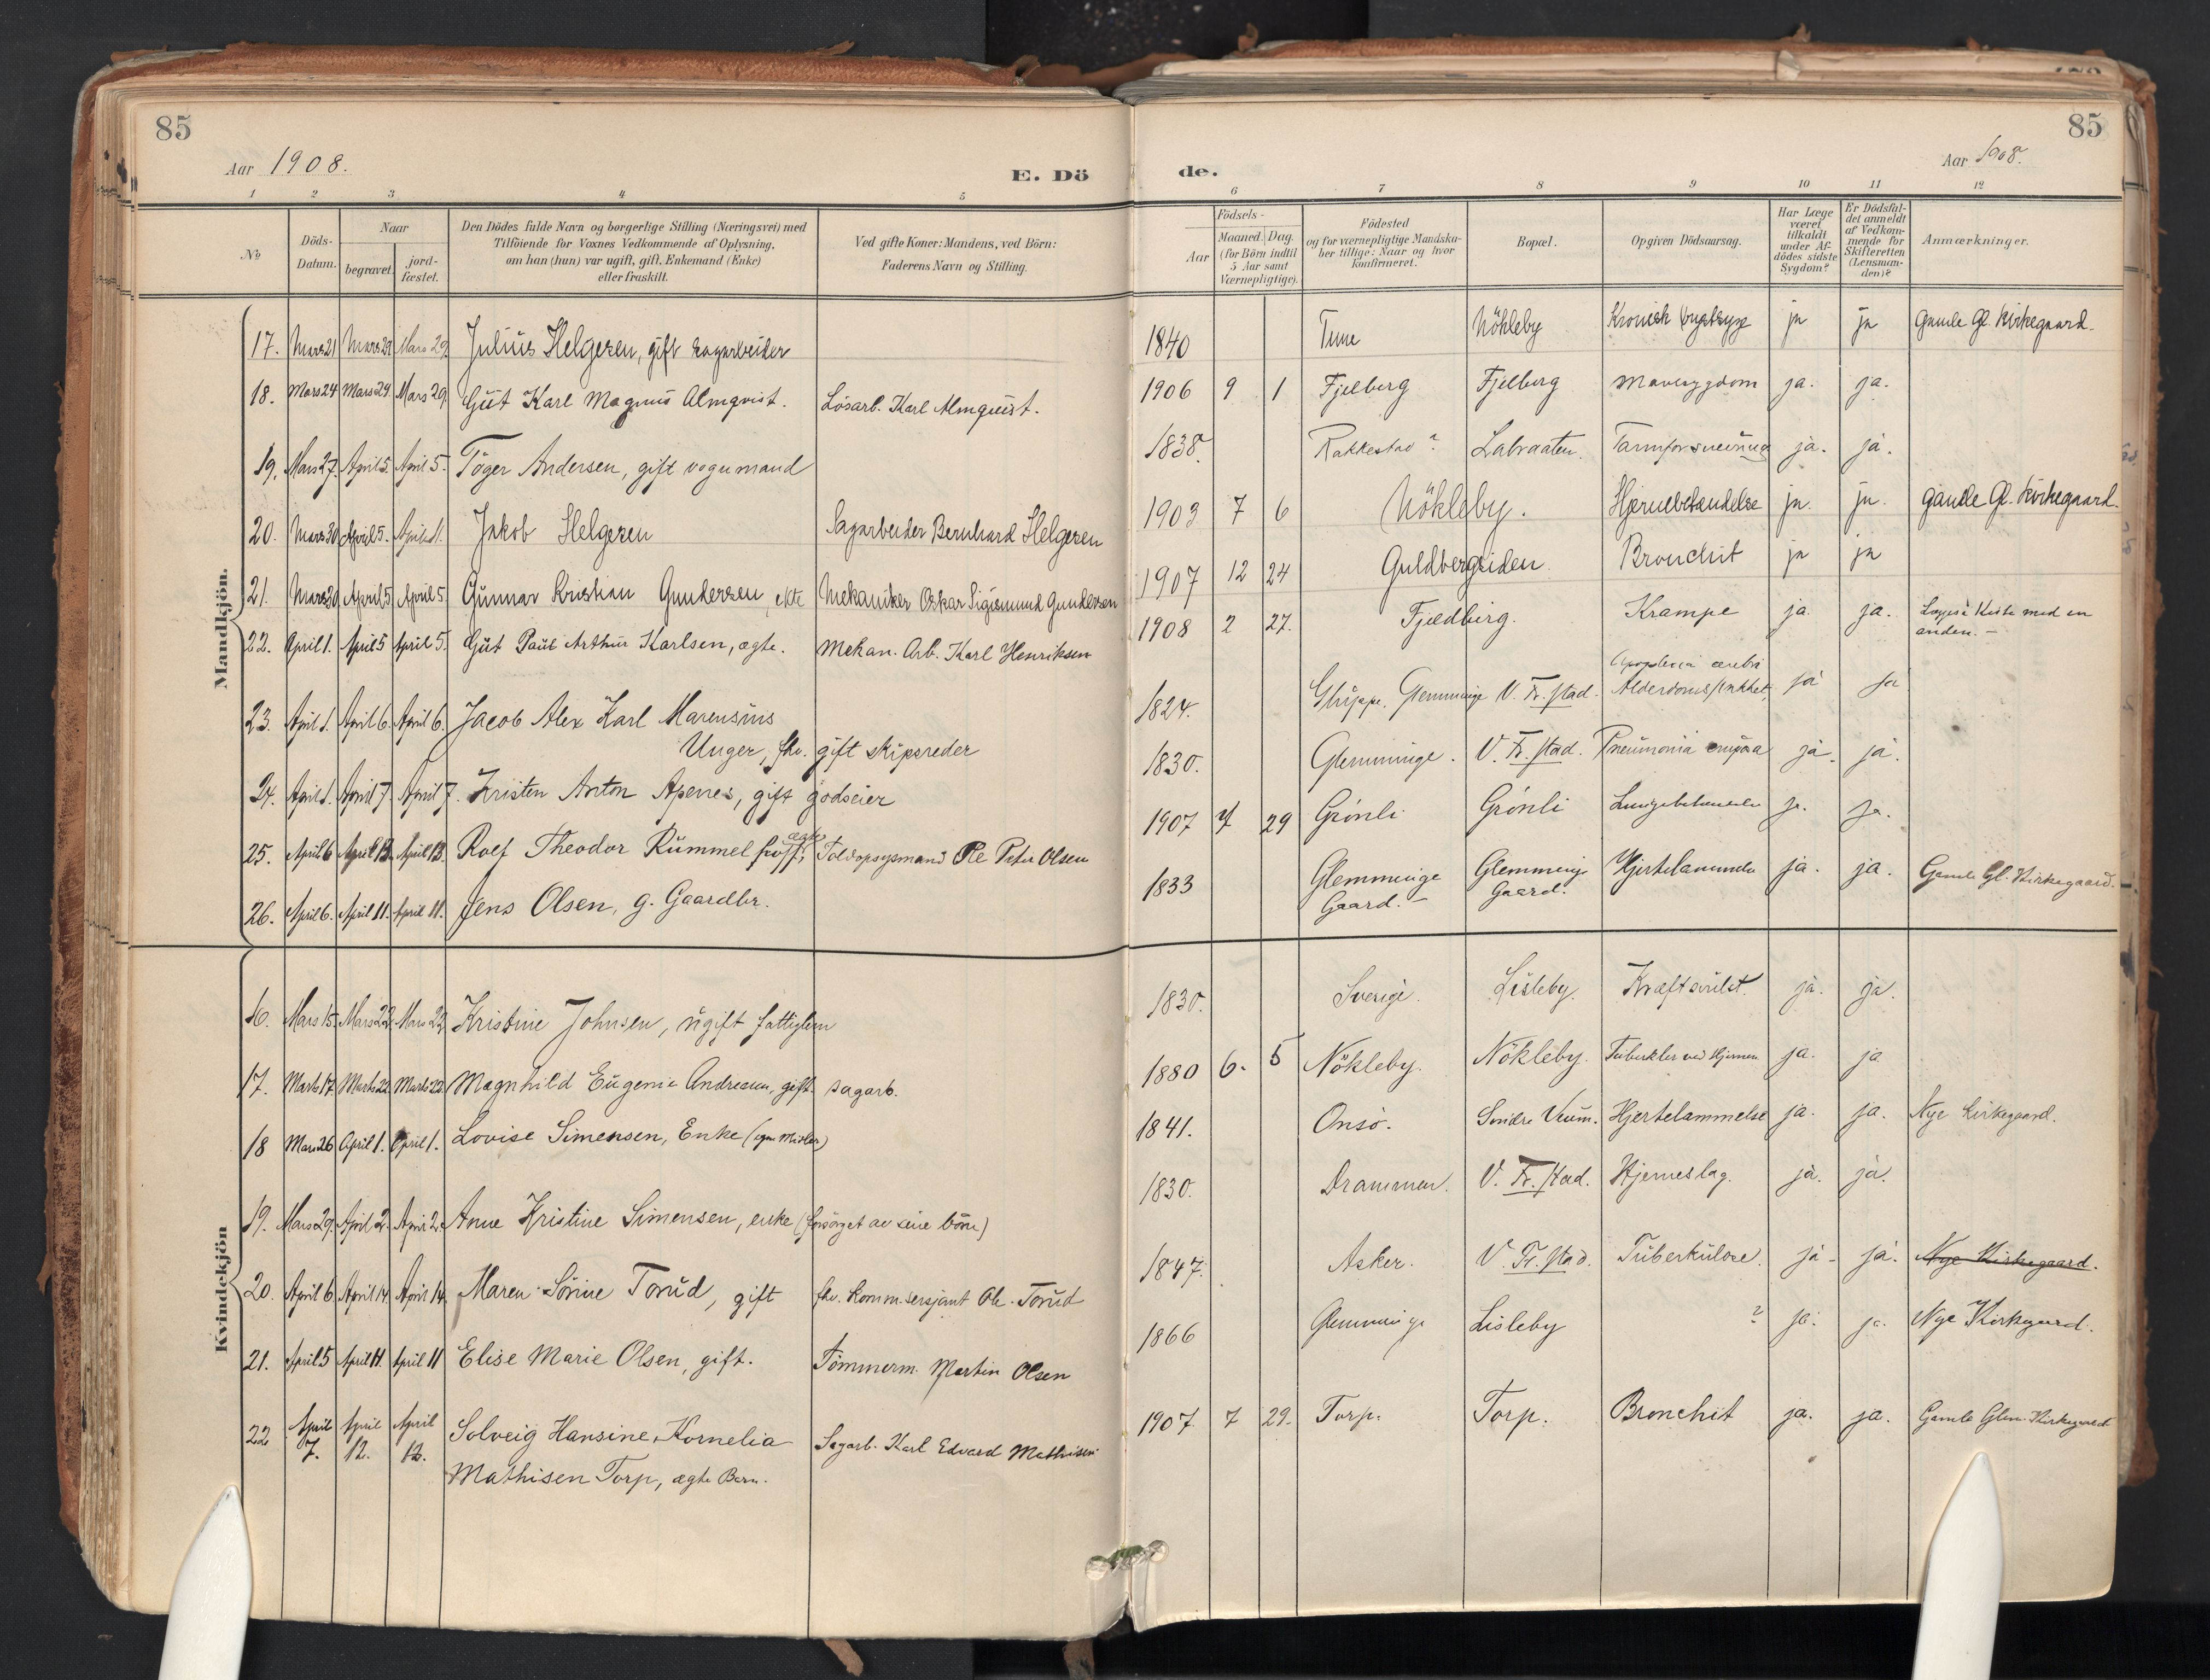 85
85
Aar 1908.
E. Dö
de.
Aar 1908.
1 2 3 4 5 6 7 8 9 10 11 12
No
Döds-
Datum.
Naar
begravet.
jord-
fæstet.
Den Dödes fulde Navn og borgerlige Stilling (Næringsvei) med
Tilföiende for Voxnes Vedkommende af Oplysning,
om han (hun) var ugift, gift, Enkemand (Enke)
eller fraskilt.
Ved gifte Koner: Mandens, ved Börn:
Faderens Navn og Stilling.
Födsels-
Aar
Maaned. Dag.
(for Börn indtil
5 Aar samt
Værnepligtige).
Födested
og for værnepligtige Mandska-
ber tillige: Naar og hvor
konfirmeret.
Bopæl.
Opgiven Dödsaarsag.
Har Læge
været
tilkaldt
under Af-
dödes sidste
Sygdom?
Er Dödsfal-
det anmeldt
af Vedkom-
mende for
Skifteretten
(Lensman-
den)?
Anmærkninger.
Mandkjön.
17. Mars 21 Mars 29 Mars 29. Julius Helgesen, gift sagarbeider 1840 Tune Nökleby Kronisk ja ja Gamle Gl. Kirkegaard.
18. Mars 24 Mars 29. Mars 29. Gut Karl Magnus Almqvist. Lösarb. Karl Almquist. 1906 9 1 Fjelberg Fjelberg Mavesygdom ja. ja.
19. Mars 27. April 5. April 5. Töger Andersen, gift vognmand 1838. Rakkestad ? Labraaten. ja. ja.
20. Mars 30 April 5. April Jakob Helgesen Sagarbeider Bernhard Helgesen 1903 7 6 Nökleby. Hjernebetændelse ja. ja. gamle Gl. Kirkegaard.
21. Mars 30 April 5 April 5 Gunnar Kristian Gundersen, ekte Mekaniker Oskar Sigismund Gundersen 1907 12 24 Guldbergsiden Bronchit ja ja
22. April 1. April 5 April 5. Gut Paul Arthur Karlsen, ægte. Mekan. Arb. Karl Henriksen 1908 2 27. Fjeldberg. Krampe ja. ja. Kiste med en
anden. —
23. April 1. April 6. April 6. Jacob Alex Karl Marensius
Unger, fhv. gift skipsreder 1824. Gluppe. Glemminge V. Fr.stad. Alderdomssvakhet, ja ja
24. April 1. April 7. April 7. Kristen Anton Apenes, gift godseier 1830. Glemminge. V. Fr.stad. Pneumonia ja. ja.
25. April 6 April 13. April 13. Rolf Theodor Rummelhoff, ægte Toldopsysmand Ole Peter Olsen 1907 29 Grönli Grönli ja. ja.
26. April 6. April 11. April 11. Jens Olsen, g. Gaardbr. 1833 Glemminge
Gaard. — Glemminge
Gaard. ja. ja. Gamle Gl. Kirkegaard.
Kvindekjön
16. Mars 15. Mars 22. Mars 22. Kristine Johnsen, ugift fattiglem 1830. Sverige. Lisleby. Kræftsvulst. ja. ja.
17. Marts 17. Marts 22. Marts 22. Magnhild Eugenie Andresen, gift. sagarb. 1880 6. 5 Nökleby. Nökleby. ja. ja
18 Mars 26 April 1. April 1. Lovise Simensen, Enke 1841. Onsö. Söndre Veum. Hjertelammelse ja. ja. Nye Kirkegaard.
19. Mars 29. April 2. April 2. Anne Kristine Simensen, enke (forsörget av sine börn) 1830. Drammen. V. Fr.stad. Hjerneslag. ja. ja.
20. April 6 April 14. April 14. Maren Sörine Torud, gift fhv. Kommsersjant Ole Torud 1847. Asker. V. Fr.stad. Tuberkulose. ja. ja. Nye Kirkegaard.
21. April 5 April 11. April 11 Elise Marie Olsen, gift. Tömmerm. Martin Olsen 1866 Glemminge Lisleby ? ja. ja. Nye Kirkegaard.
22 April
7. April
12. April
12. Solveig Hansine Kornelia
Mathisen Torp, ægte Barn. Sagarb. Karl Edvard Mathisen 1907. 7 29. Torp. Torp. Bronchit ja. ja. Gamle Glem. Kirkegaard